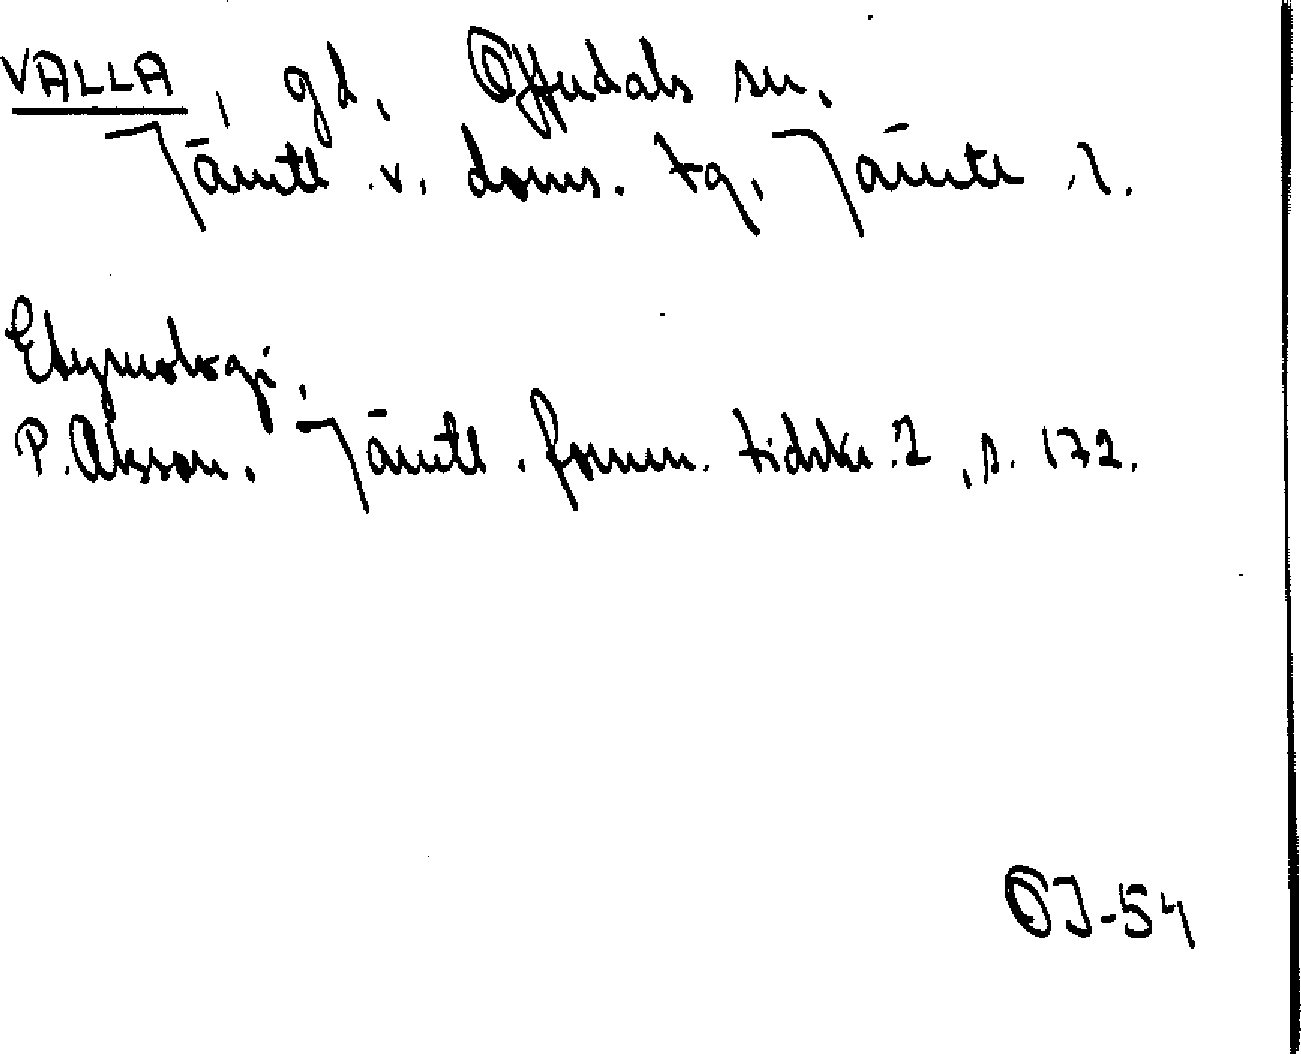 VALLA, gd, Offerdals sn,
Jämtl. v. doms. tg, Jämtl. l.
Etymologi,
P. Olsson. Jämtl. fornm. tidskr. 2, s. 172.
OJ-54